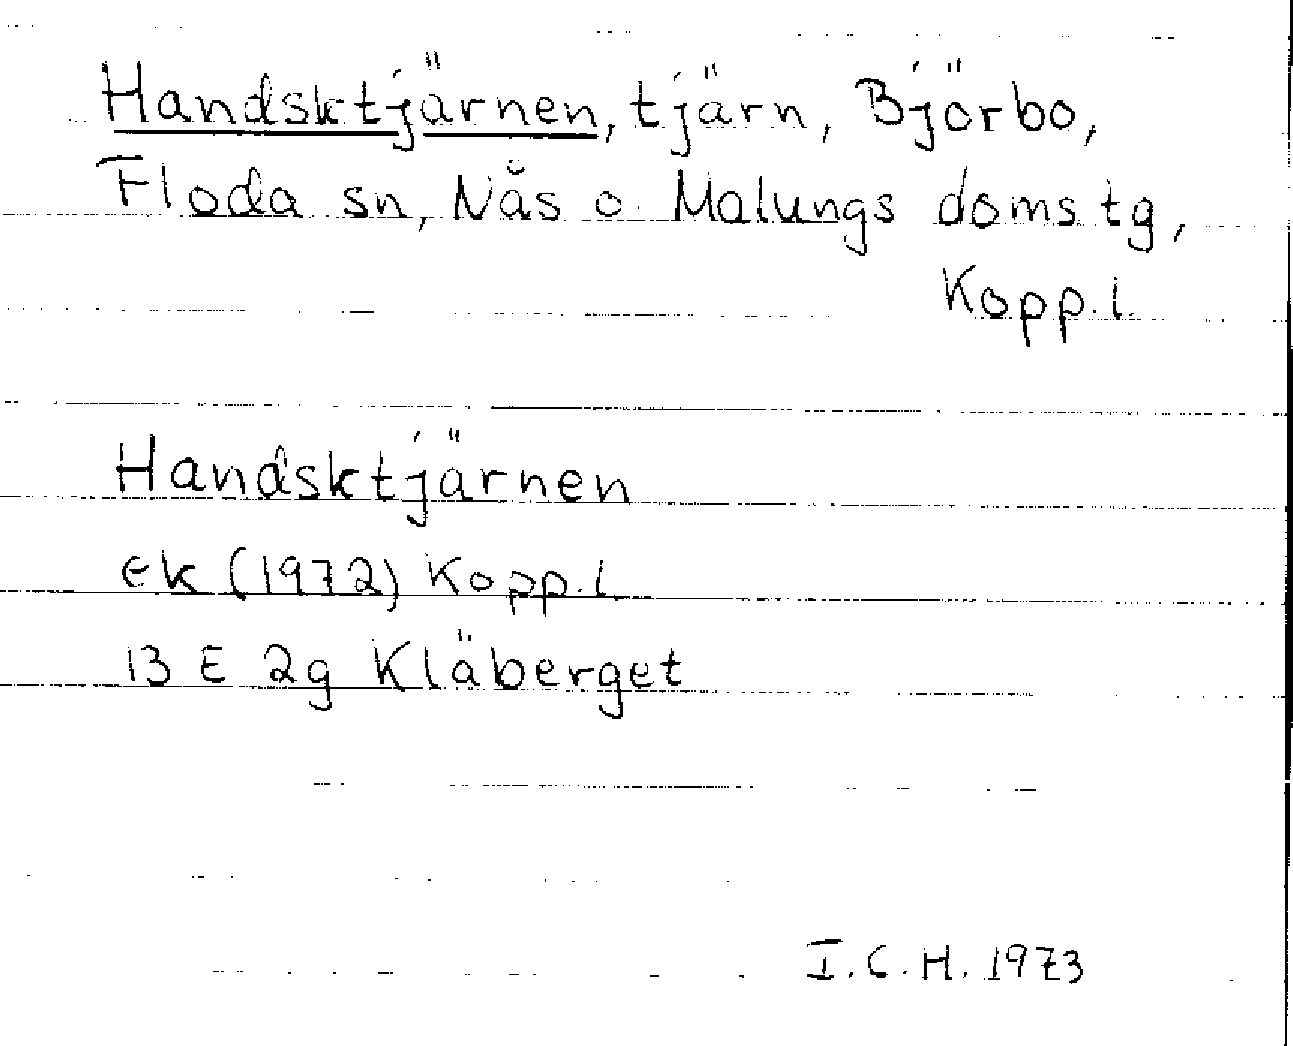 Handsktjärnen, tjärn, Björbo,
Floda sn, Nås o Malungs domstg,
Kopp.l.
Handsktjärnen
ek (1972) Kopp.l.
13 E 2g Kläberget
I.C.H. 1973